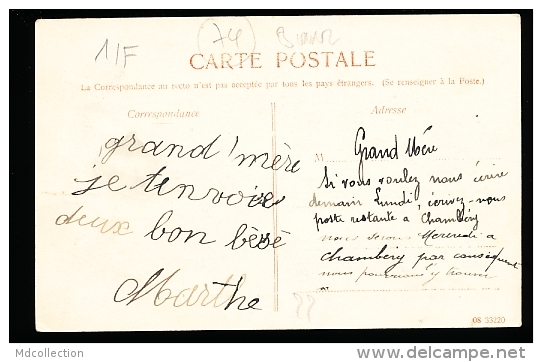 1/F (74)
CARTE POSTALE
La Correspondance au recto n'est pas acceptée par tous les pays étrangers. (Se renseigner à la Poste.)
Correspondance
grand'mère
je t'envoie
deux bon bésé
Marthe
Adresse
M Grand Mère
Si vous voulez nous écrire
demain Lundi, écrivez-nous
poste restante à Chambéry
nous serons Mercredi à
chambéry par conséquent
nous pourrons y trouver
08 33220
Mdcollection
delcampe.net